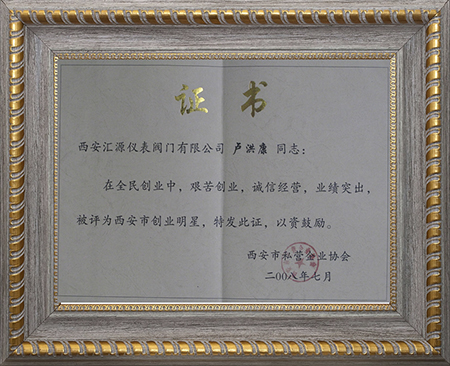 证书
西安汇源仪表阀门有限公司 卢洪康 同志：
在全民创业中，艰苦创业，诚信经营，业绩突出，
被评为西安市创业明星，特发此证，以资鼓励。
西安市私营企业协会
二00八年七月